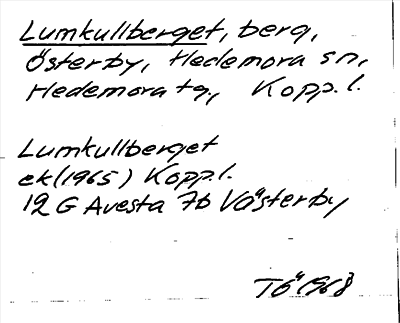 Lumkullberget, berg,
Österby, Hedemora sn,
Hedemora tg., Kopp. l.
Lumkullberget
ek (1965) Kopp. l.
12 G Avesta 7b Västerby
TÖ 1968